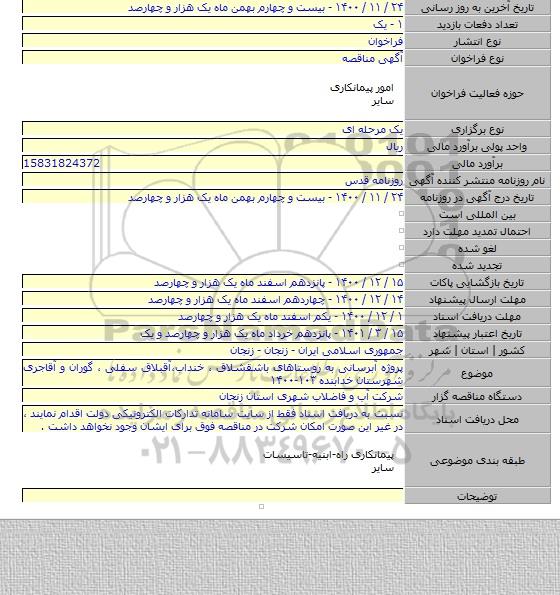 تاریخ آخرین به روز رسانی ۲۴ / ۱۱ / ۱۴۰۰ - بیست و چهارم بهمن ماه یک هزار و چهارصد
تعداد دفعات بازدید ۱ - یک
نوع انتشار فراخوان
نوع فراخوان آگهی مناقصه
حوزه فعالیت فراخوان
امور پیمانکاری
سایر
نوع برگزاری یک مرحله ای
واحد پولی برآورد مالی ریال
برآورد مالی 15831824372
نام روزنامه منتشر کننده آگهی روزنامه قدس
تاریخ درج آگهی در روزنامه ۲۴ / ۱۱ / ۱۴۰۰ - بیست و چهارم بهمن ماه یک هزار و چهارصد
بین المللی است
احتمال تمدید مهلت دارد
لغو شده
تجدید شده
تاریخ بازگشایی پاکات ۱۵ / ۱۲ / ۱۴۰۰ - پانزدهم اسفند ماه یک هزار و چهارصد
مهلت ارسال پیشنهاد ۱۴ / ۱۲ / ۱۴۰۰ - چهاردهم اسفند ماه یک هزار و چهارصد
مهلت دریافت اسناد ۱ / ۱۲ / ۱۴۰۰ - یکم اسفند ماه یک هزار و چهارصد
تاریخ اعتبار پیشنهاد ۱۵ / ۳ / ۱۴۰۱ - پانزدهم خرداد ماه یک هزار و چهارصد و یک
کشور | استان | شهر جمهوری اسلامی ایران - زنجان - زنجان
موضوع
پروژه آبرسانی به روستاهای باشقشلاق ، خنداب،آقبلاق سفلی ، گوران و آقاجری
شهرستان خدابنده ۱۰۳-۱۴۰۰
دستگاه مناقصه گزار شرکت آب و فاضلاب شهری استان زنجان
محل دریافت اسناد
نسبت به دریافت اسناد فقط از سایت سامانه تدارکات الکترونیکی دولت اقدام نمایند ،
در غیر این صورت امکان شرکت در مناقصه فوق برای ایشان وجود نخواهد داشت .
طبقه بندی موضوعی
پیمانکاری راه-ابنیه-تاسیسات
سایر
توضیحات
۰۲۱-۸۸۳۴۹۶۷۰-۵